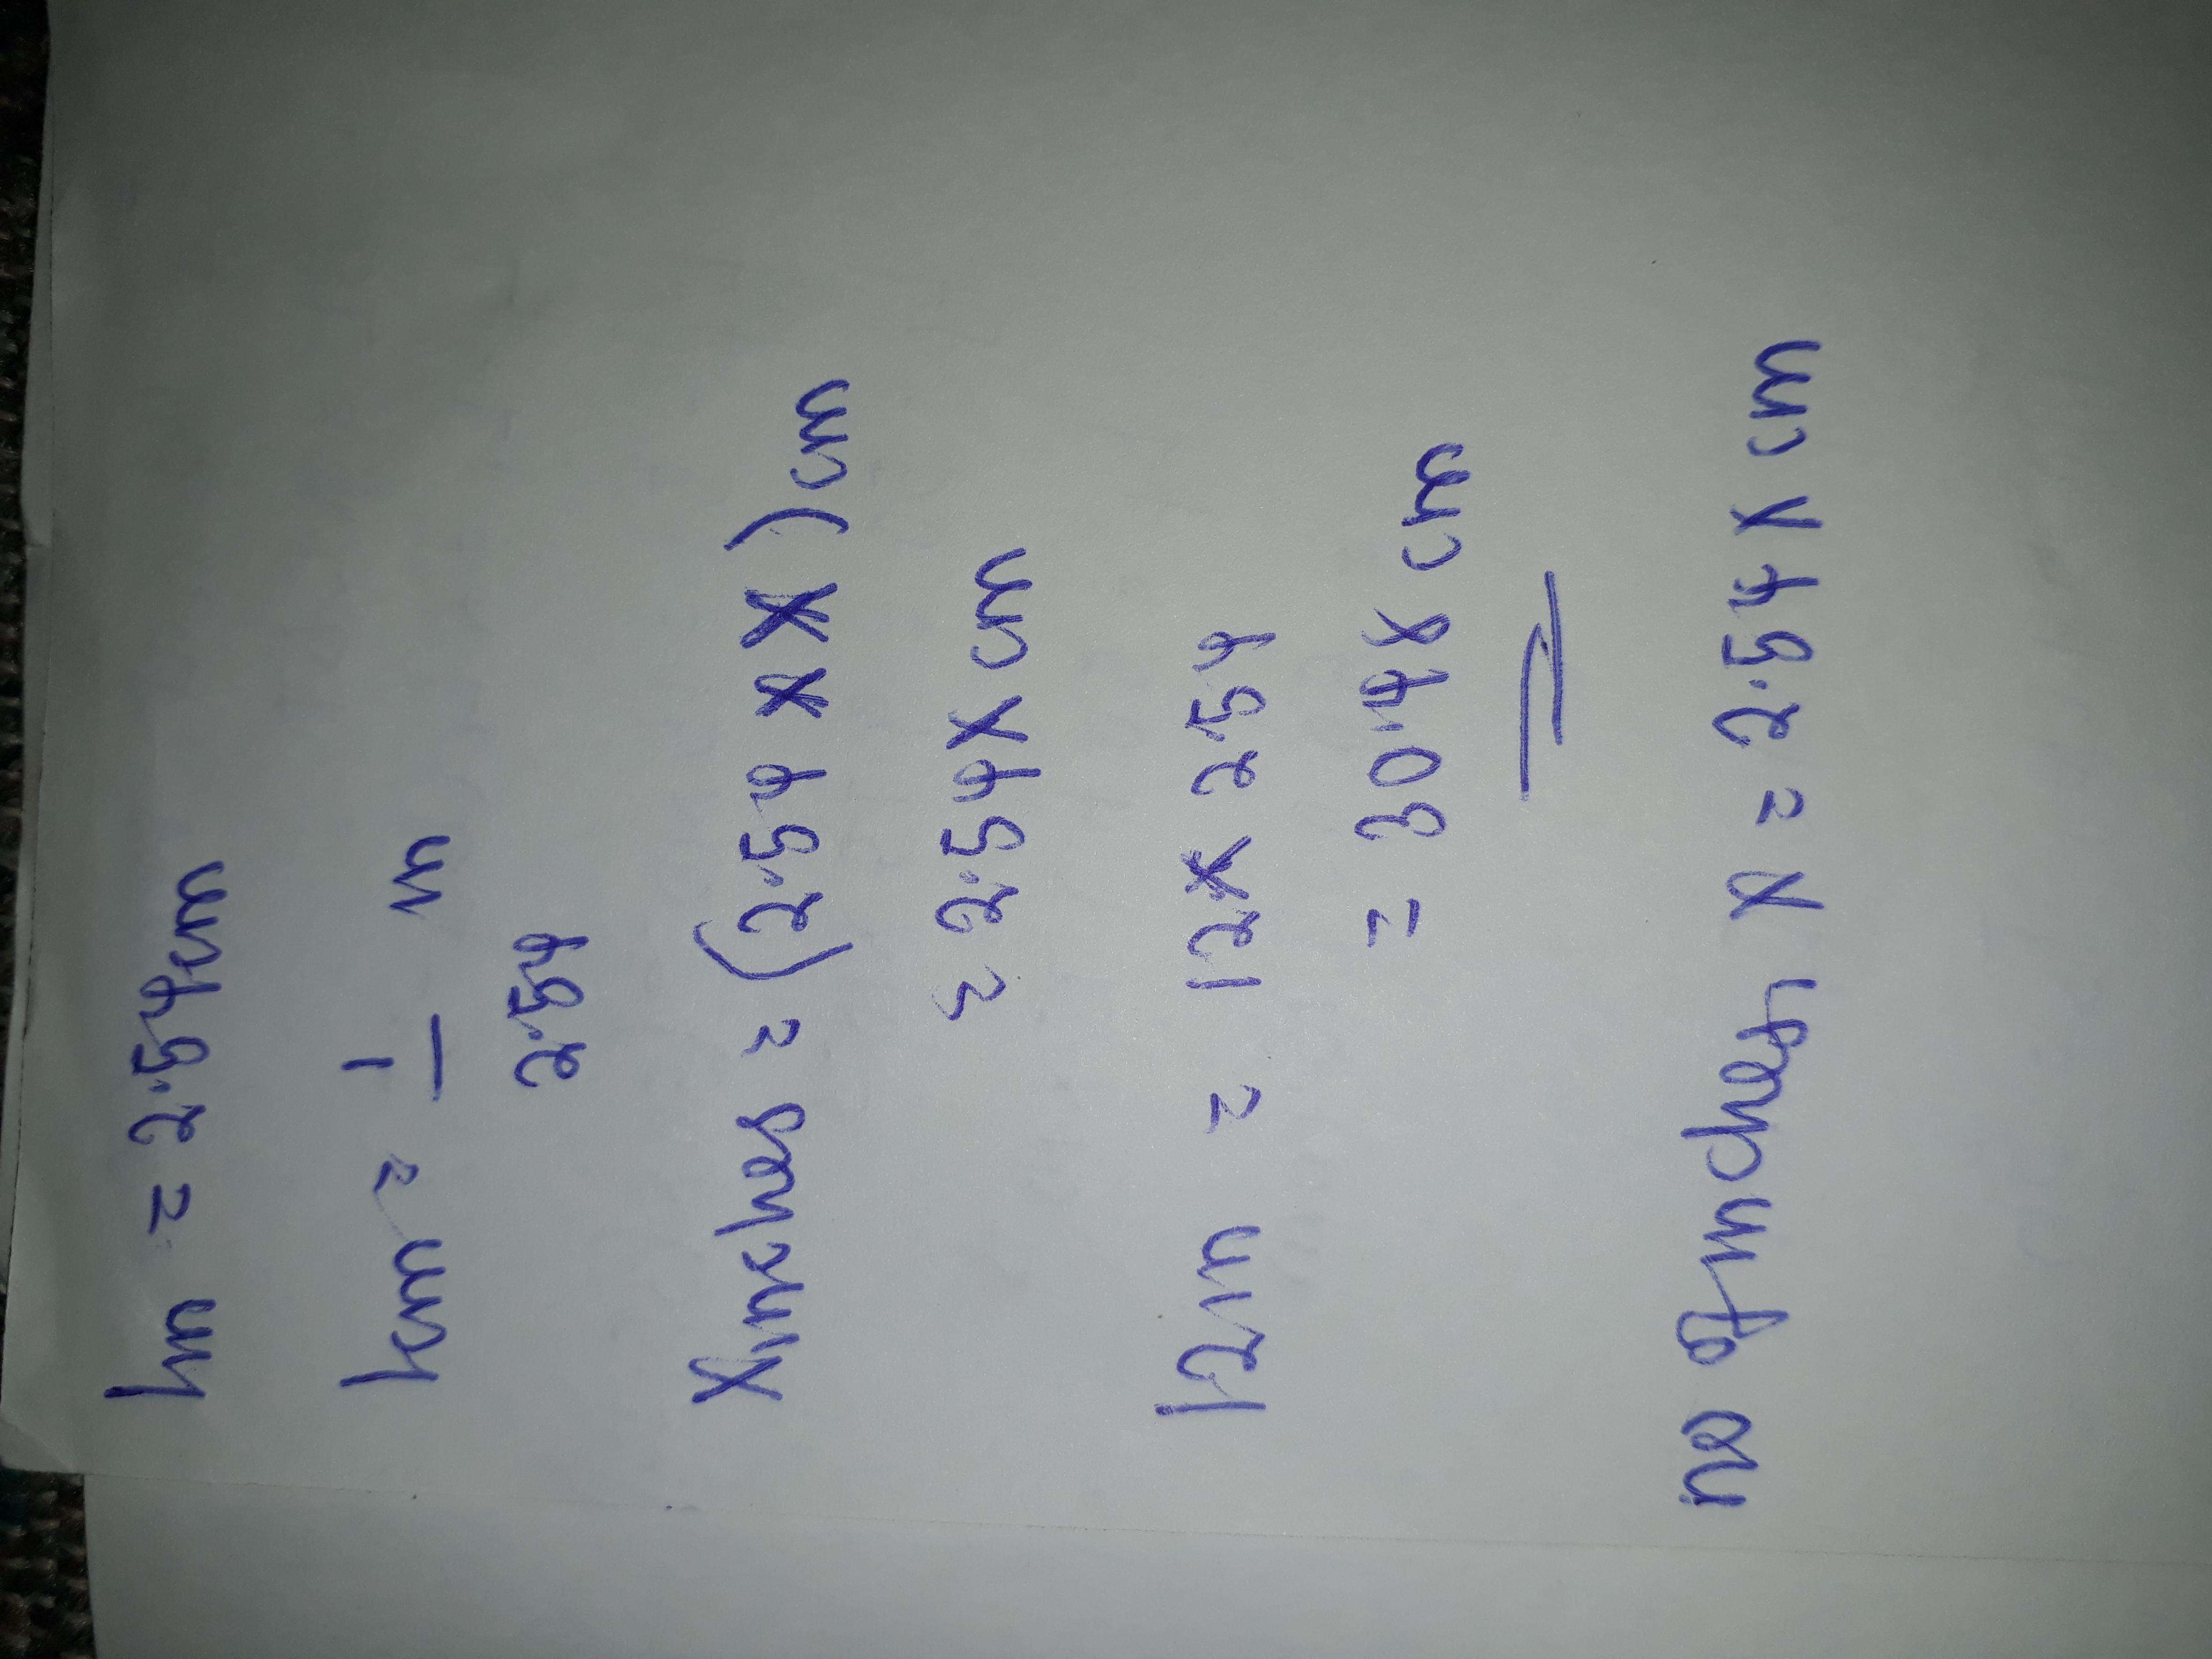 1in = 2.54cm
1cm = 1/2.54 in
X inches = (2.54 x X) cm
= 2.54X cm
12in = 12 x 2.54
= 30.48 cm
no of inches, X = 2.54 X cm